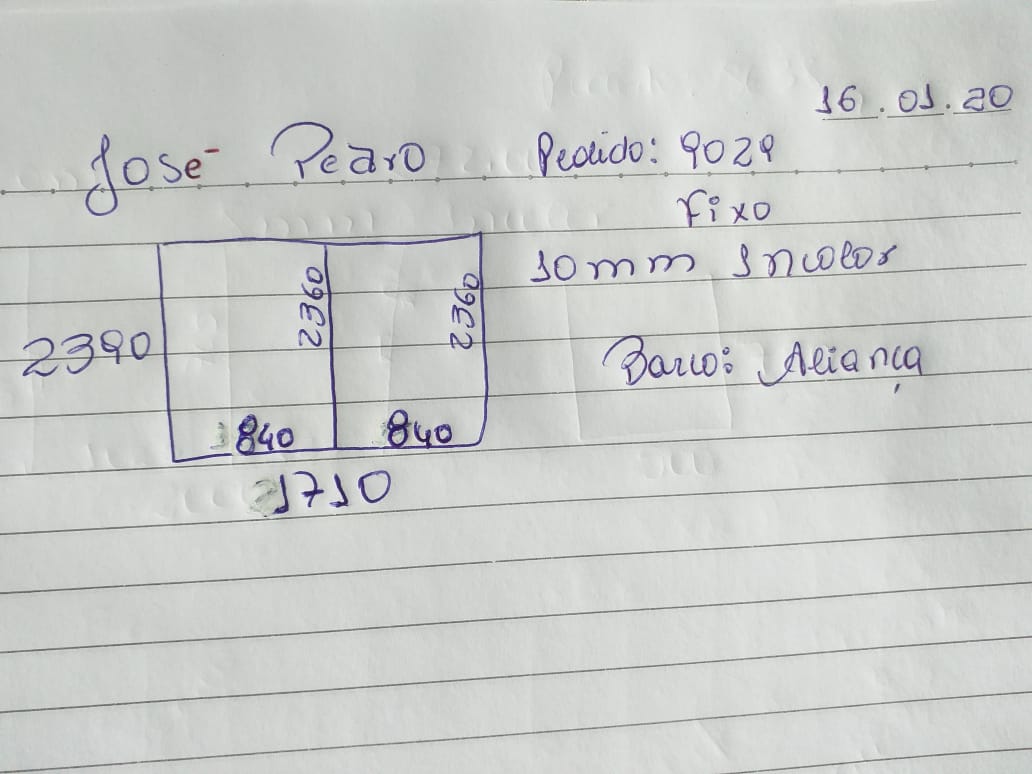 16.01.20
José Pedro Pedido: 9029
Fixo
10mm Incolor
2360 2360
2390
Barco: Aliança
840 840
1710